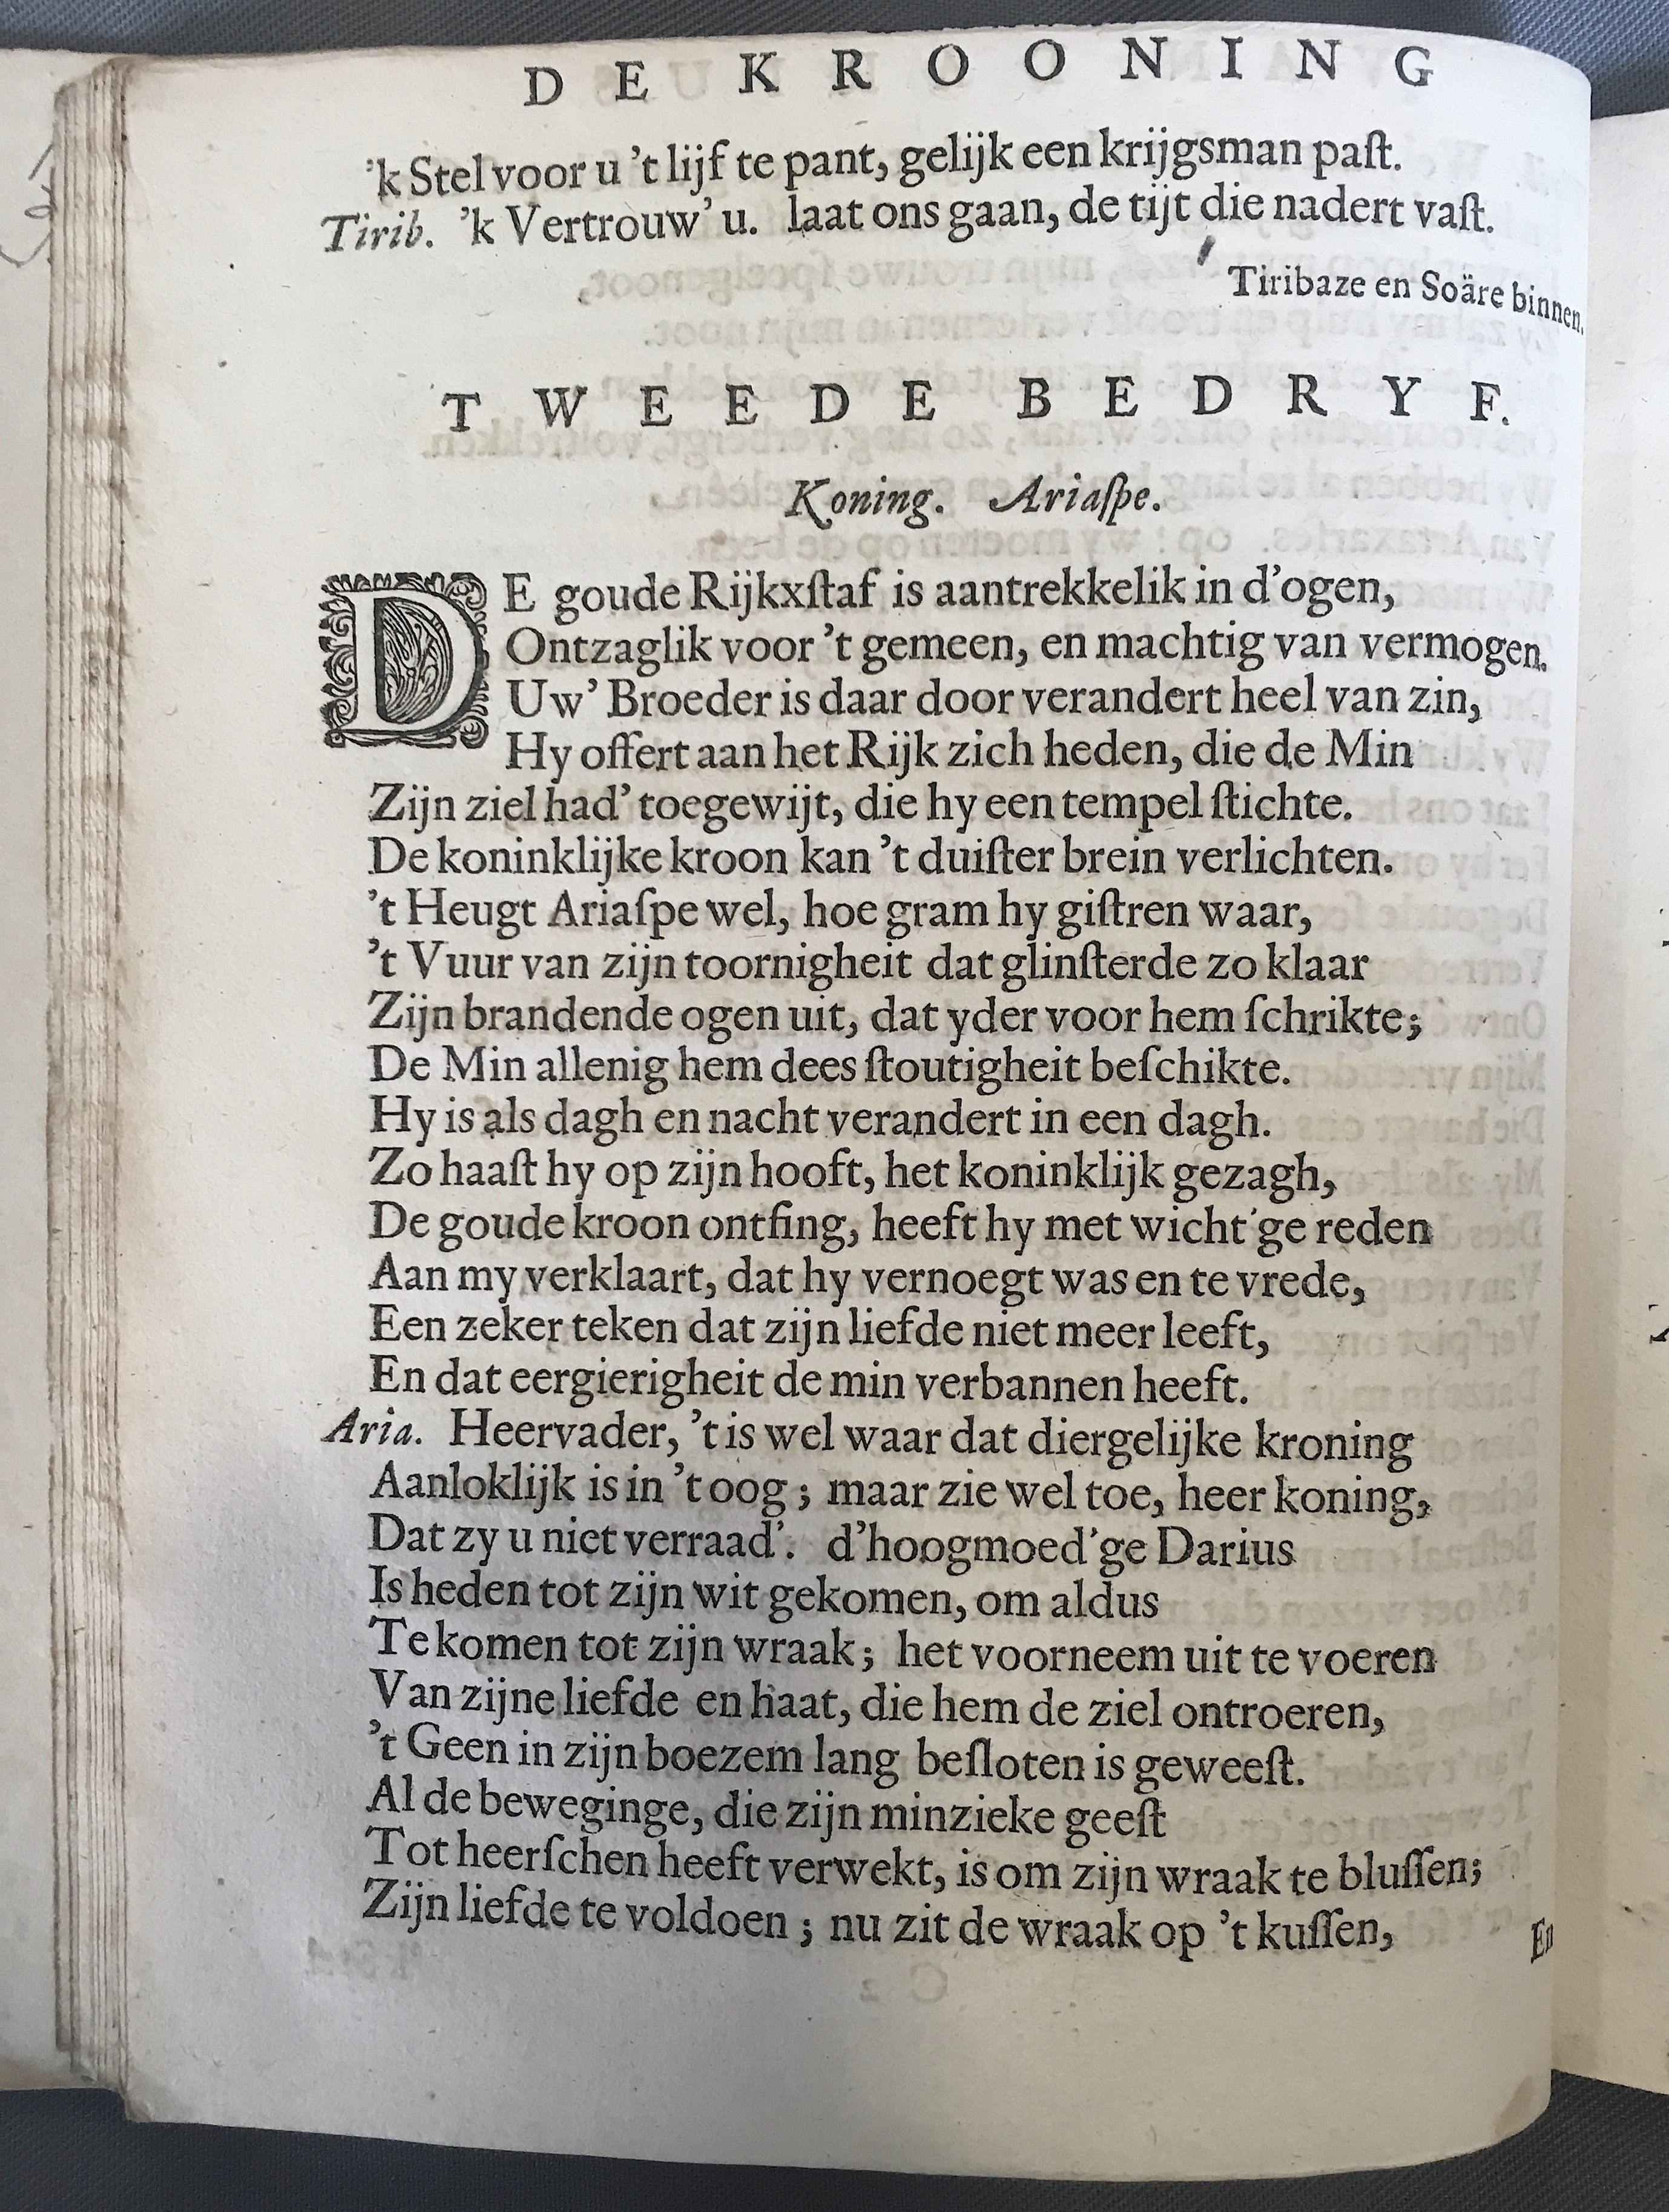 DE KROONING
'k Stel voor u 't lijf te pant, gelijk een krijgsman paſt.
Tirib. 'k Vertrouw' u. laat ons gaan, de tijt die nadert vaſt.
Tiribaze en Soäre binnen.
TWEEDE BEDRYF.
Koning. Ariaſpe.
DE goude Rijkxſtaf is aantrekkelik in d'ogen,
Ontzaglik voor 't gemeen, en machtig van vermogen.
Uw' Broeder is daar door verandert heel van zin,
Hy offert aan het Rijk zich heden, die de Min
Zijn ziel had' toegewijt, die hy een tempel ſtichte.
De koninklijke kroon kan 't duiſter brein verlichten.
't Heugt Ariaſpe wel, hoe gram hy giſtren waar,
't Vuur van zijn toornigheit dat glinſterde zo klaar
Zijn brandende ogen uit, dat yder voor hem ſchrikte;
De Min allenig hem dees ſtoutigheit beſchikte.
Hy is als dagh en nacht verandert in een dagh.
Zo haaſt hy op zijn hooft, het koninklijk gezagh,
De goude kroon ontfing, heeft hy met wicht'ge reden
Aan my verklaart, dat hy vernoegt was en te vrede,
Een zeker teken dat zijn liefde niet meer leeft,
En dat eergierigheit de min verbannen heeft.
Aria. Heervader, 't is wel waar dat diergelijke kroning
Aanloklijk is in 't oog; maar zie wel toe, heer koning,
Dat zy u niet verraad'. d'hoogmoed'ge Darius
Is heden tot zijn wit gekomen, om aldus
Te komen tot zijn wraak; het voorneem uit te voeren
Van zijne liefde en haat, die hem de ziel ontroeren,
't Geen in zijn boezem lang beſloten is geweeſt.
Al de beweginge, die zijn minzieke geeſt
Tot heerſchen heeft verwekt, is om zijn wraak te bluſſen;
Zijn liefde te voldoen; nu zit de wraak op 't kuſſen,
En